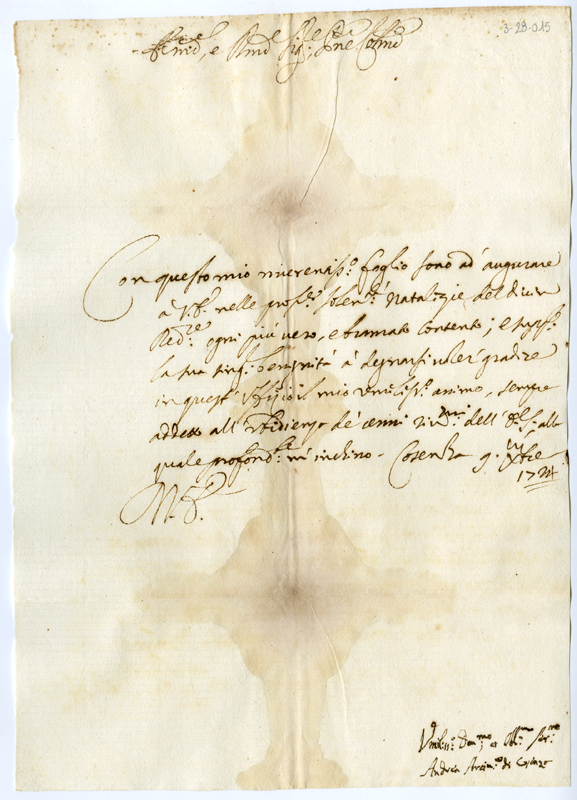 3-28-015
Em.mo e Rmo Sig.re Pne Colmo
Con questo mio riverentiss.o foglio sono ad augurare
à V.E. nelle pros.e solen.tà Natalizie del Divin
Red.re ogni più vero, e bramato contento; e supp.o
la sua sing. benignità à degnarsi voler gradire
in questo Ufficio il mio umiliss.o animo, sempre
all' de' cenni dell' E.S., alla
quale profond.te m'inchino. Cosenza 9. Xbre
1724
V.E.
Umiliss.o Dev.mo et Obl.mo Ser.re
Andrea Arciv.o di Cosenza